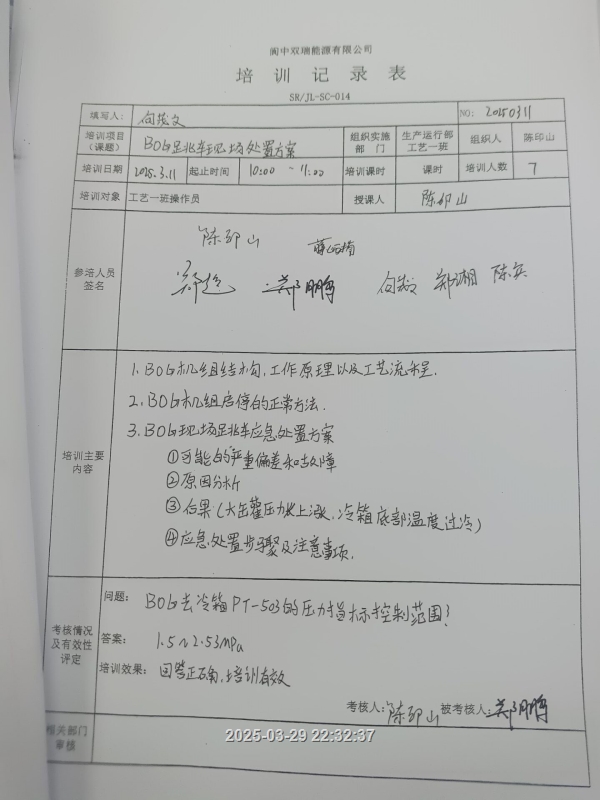 阆中双瑞能源有限公司
培训记录表
SR/JL-SC-014
填写人： NO: 20250311
培训项目（课题） BOG 现场处置方案 组织实施部门 生产运行部工艺一班 组织人 陈印山
培训日期 2025.3.11 起止时间 10:00 ~ 11:00 培训课时 课时 培训人数 7
培训对象 工艺一班操作员 授课人 陈印山
参培人员签名
陈印山
郑鹏
培训主要内容
1. BOG机组结构、工作原理以及工艺流程.
2. BOG机组启停的正常方法.
3. BOG现场 应急处置方案
①可能的严重偏差和故障
②原因分析
③后果（大缶罐压力上涨，冷箱底部温度过冷）
④应急处置步骤及注意事项.
考核情况及有效性评定
问题： BOG去冷箱PT-503的压力指标控制范围?
答案： 1.5~2.53MPa
培训效果： 回答正确,培训有效
考核人：陈印山 被考核人：郑鹏
相关部门审核
2025-03-29 22:32:37